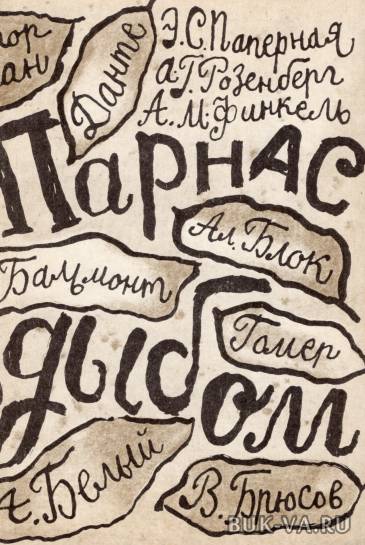 Э.С.Паперная
А.Г.Розенберг
А.М.Финкель
Данте
Парнас
Ал. Блок
Бальмонт
Гомер
дыбом
А. Белый
В. Брюсов
BUK-VA.RU